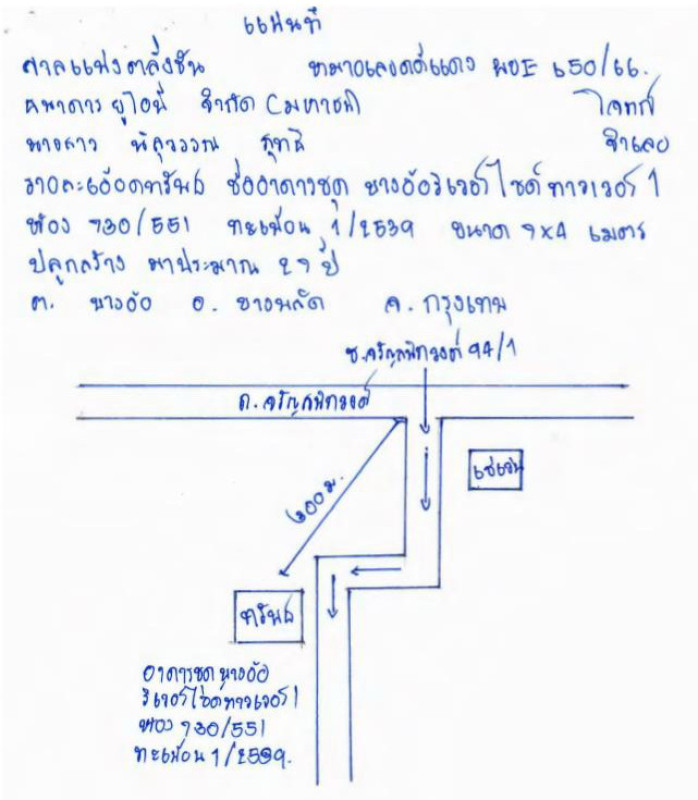 แผนที่
ศาลแพ่งตลิ่งชัน หมายเลขคดีแดง ผบE 650/66.
ธนาคาร ยูโอบี จำกัด (มหาชน) โจทก์
นางสาว นัสุวรรณ สุทธิ จำเลย
รายละเอียดทรัพย์ ชื่ออาคารชุด บางอ้อริเวอร์ไซด์ทาวเวอร์ 1
ห้อง 730/551 ทะเบียน 1/2539 ขนาด 7x4 เมตร
ปลูกสร้าง มาประมาณ 27 ปี
ต. บางอ้อ อ. บางพลัด จ. กรุงเทพ
ซ.จรัญสนิทวงศ์ 94/1
ถ. จรัญสนิทวงศ์
เซเว่น
200 ม.
ทรัพย์
อาคารชุด บางอ้อ
ริเวอร์ไซด์ทาวเวอร์ 1
ห้อง 730/551
ทะเบียน 1/2539.